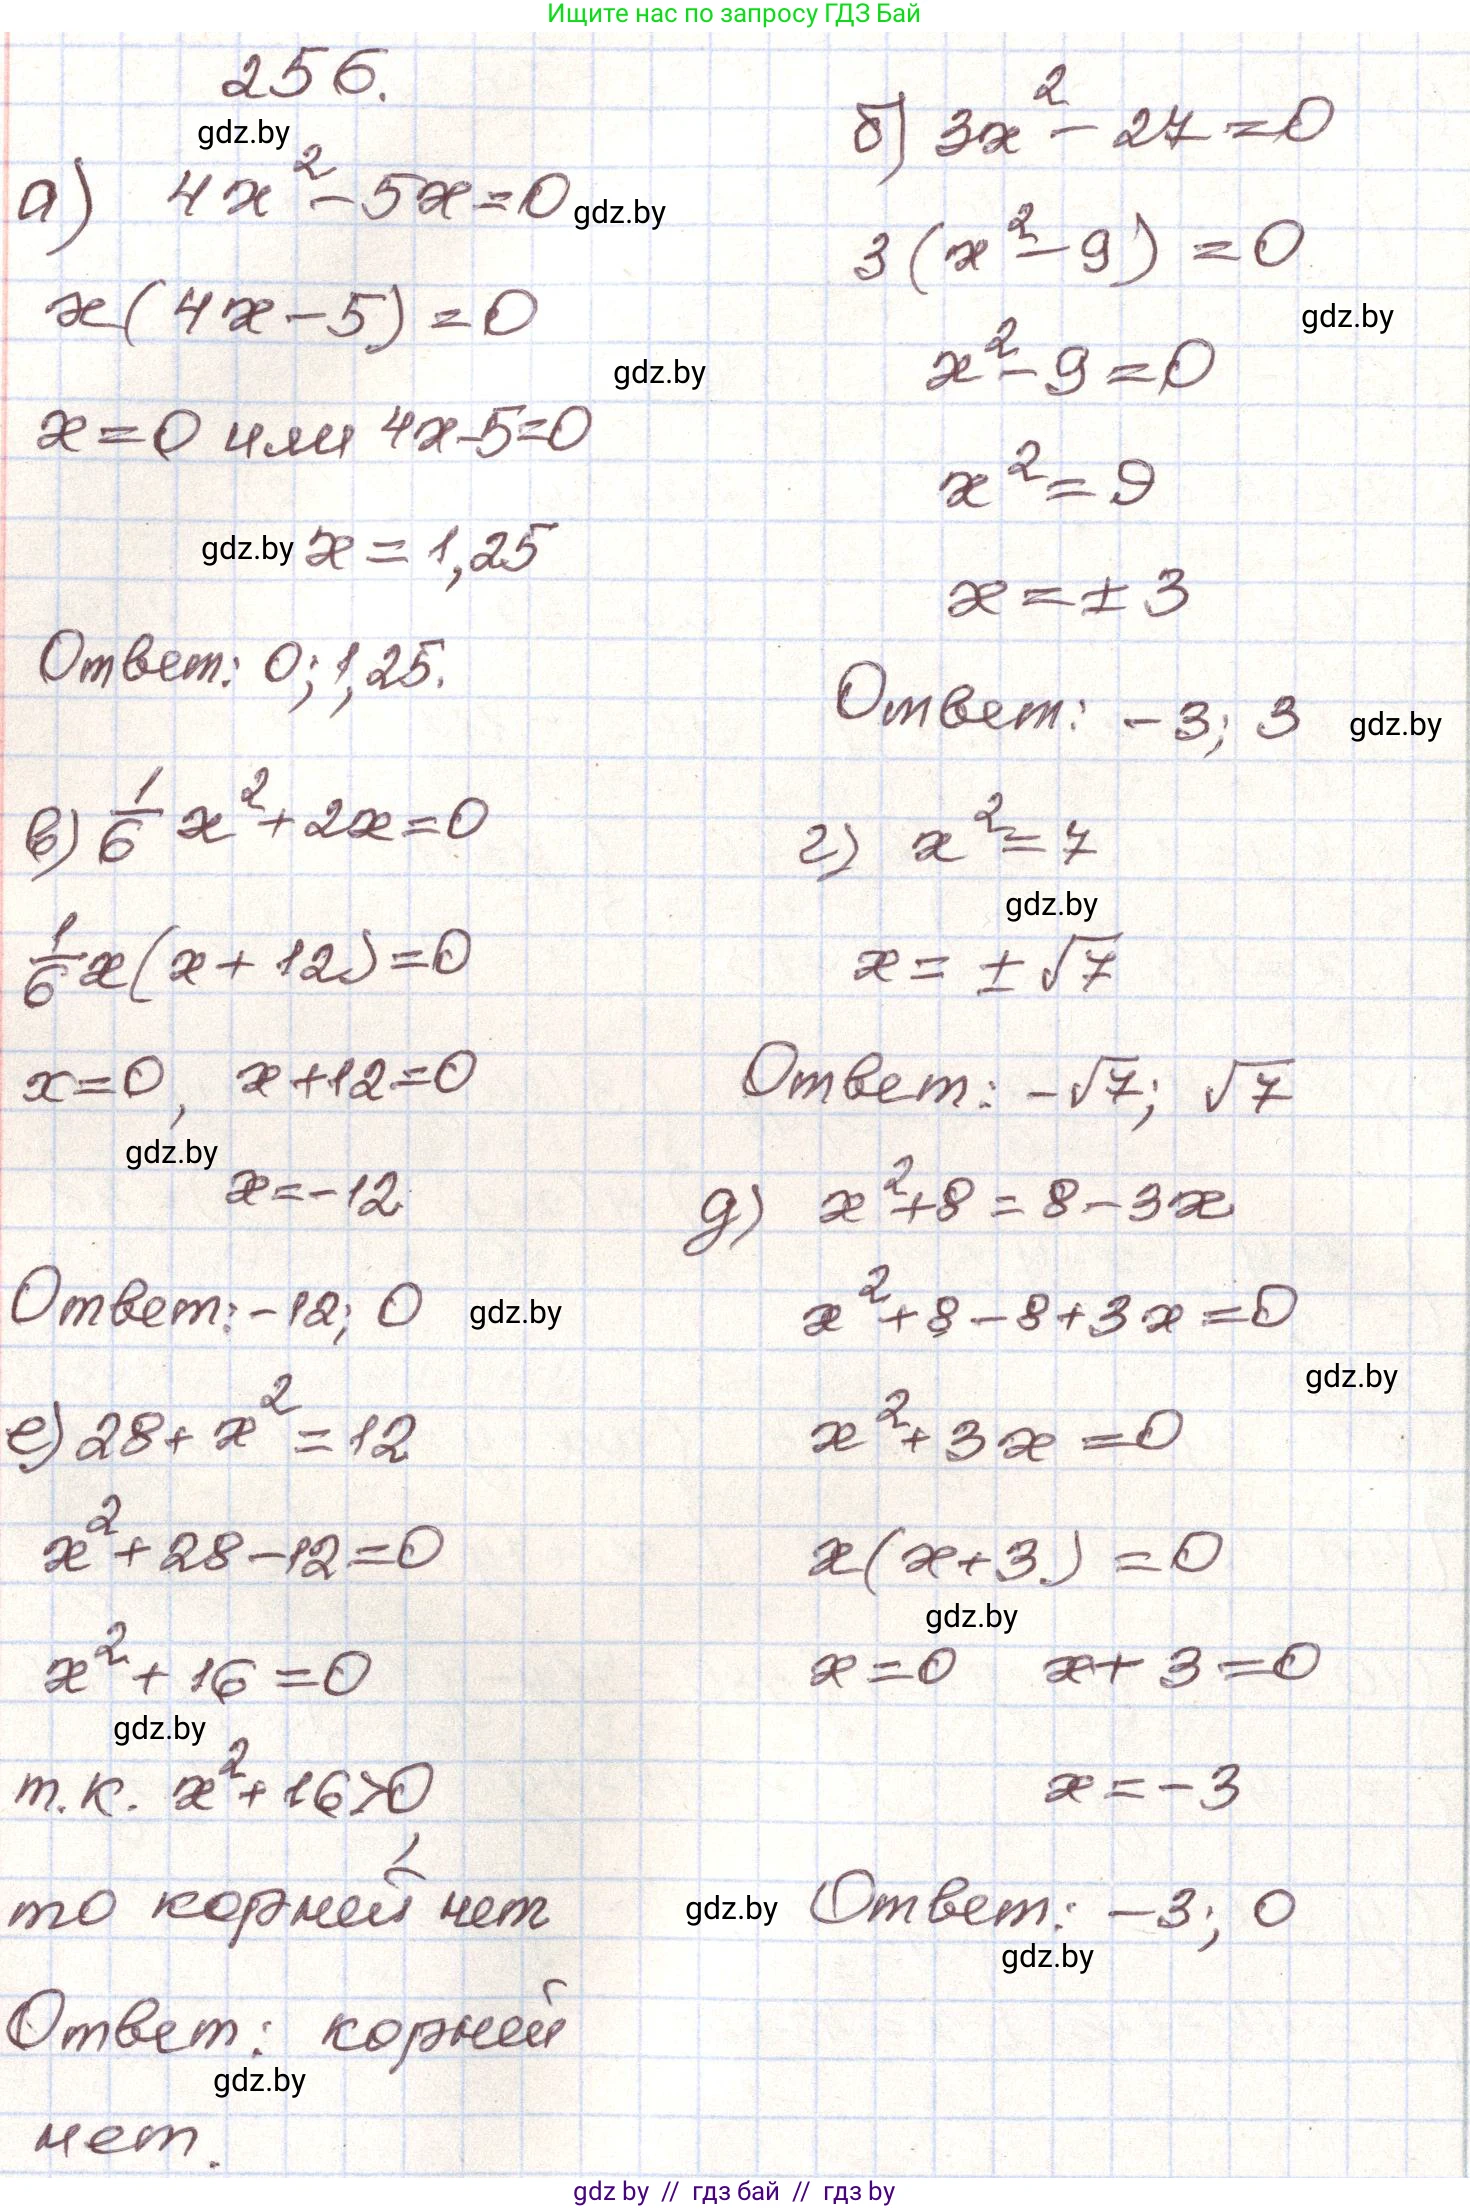 Ищите нас по запросу ГДЗ Бай
256.
gdz.by
а) 4x² - 5x = 0
gdz.by
x(4x - 5) = 0
gdz.by
x = 0 или 4x - 5 = 0
gdz.by
x = 1,25
Ответ: 0; 1,25.
б) 3x² - 27 = 0
3(x² - 9) = 0
gdz.by
x² - 9 = 0
x² = 9
x = ± 3
Ответ: -3; 3
gdz.by
в) 1/6 x² + 2x = 0
1/6 x(x + 12) = 0
x = 0, x + 12 = 0
gdz.by
x = -12
Ответ: -12; 0
gdz.by
г) x² = 7
gdz.by
x = ± √7
Ответ: -√7; √7
д) x² + 8 = 8 - 3x
x² + 8 - 8 + 3x = 0
gdz.by
x² + 3x = 0
x(x + 3) = 0
gdz.by
x = 0 x + 3 = 0
x = -3
gdz.by
Ответ: -3; 0
gdz.by
е) 28 + x² = 12
x² + 28 - 12 = 0
x² + 16 = 0
gdz.by
т.к. x² + 16 > 0,
то корней нет
Ответ: корней
gdz.by
нет.
gdz by // гдз бай // гдз by